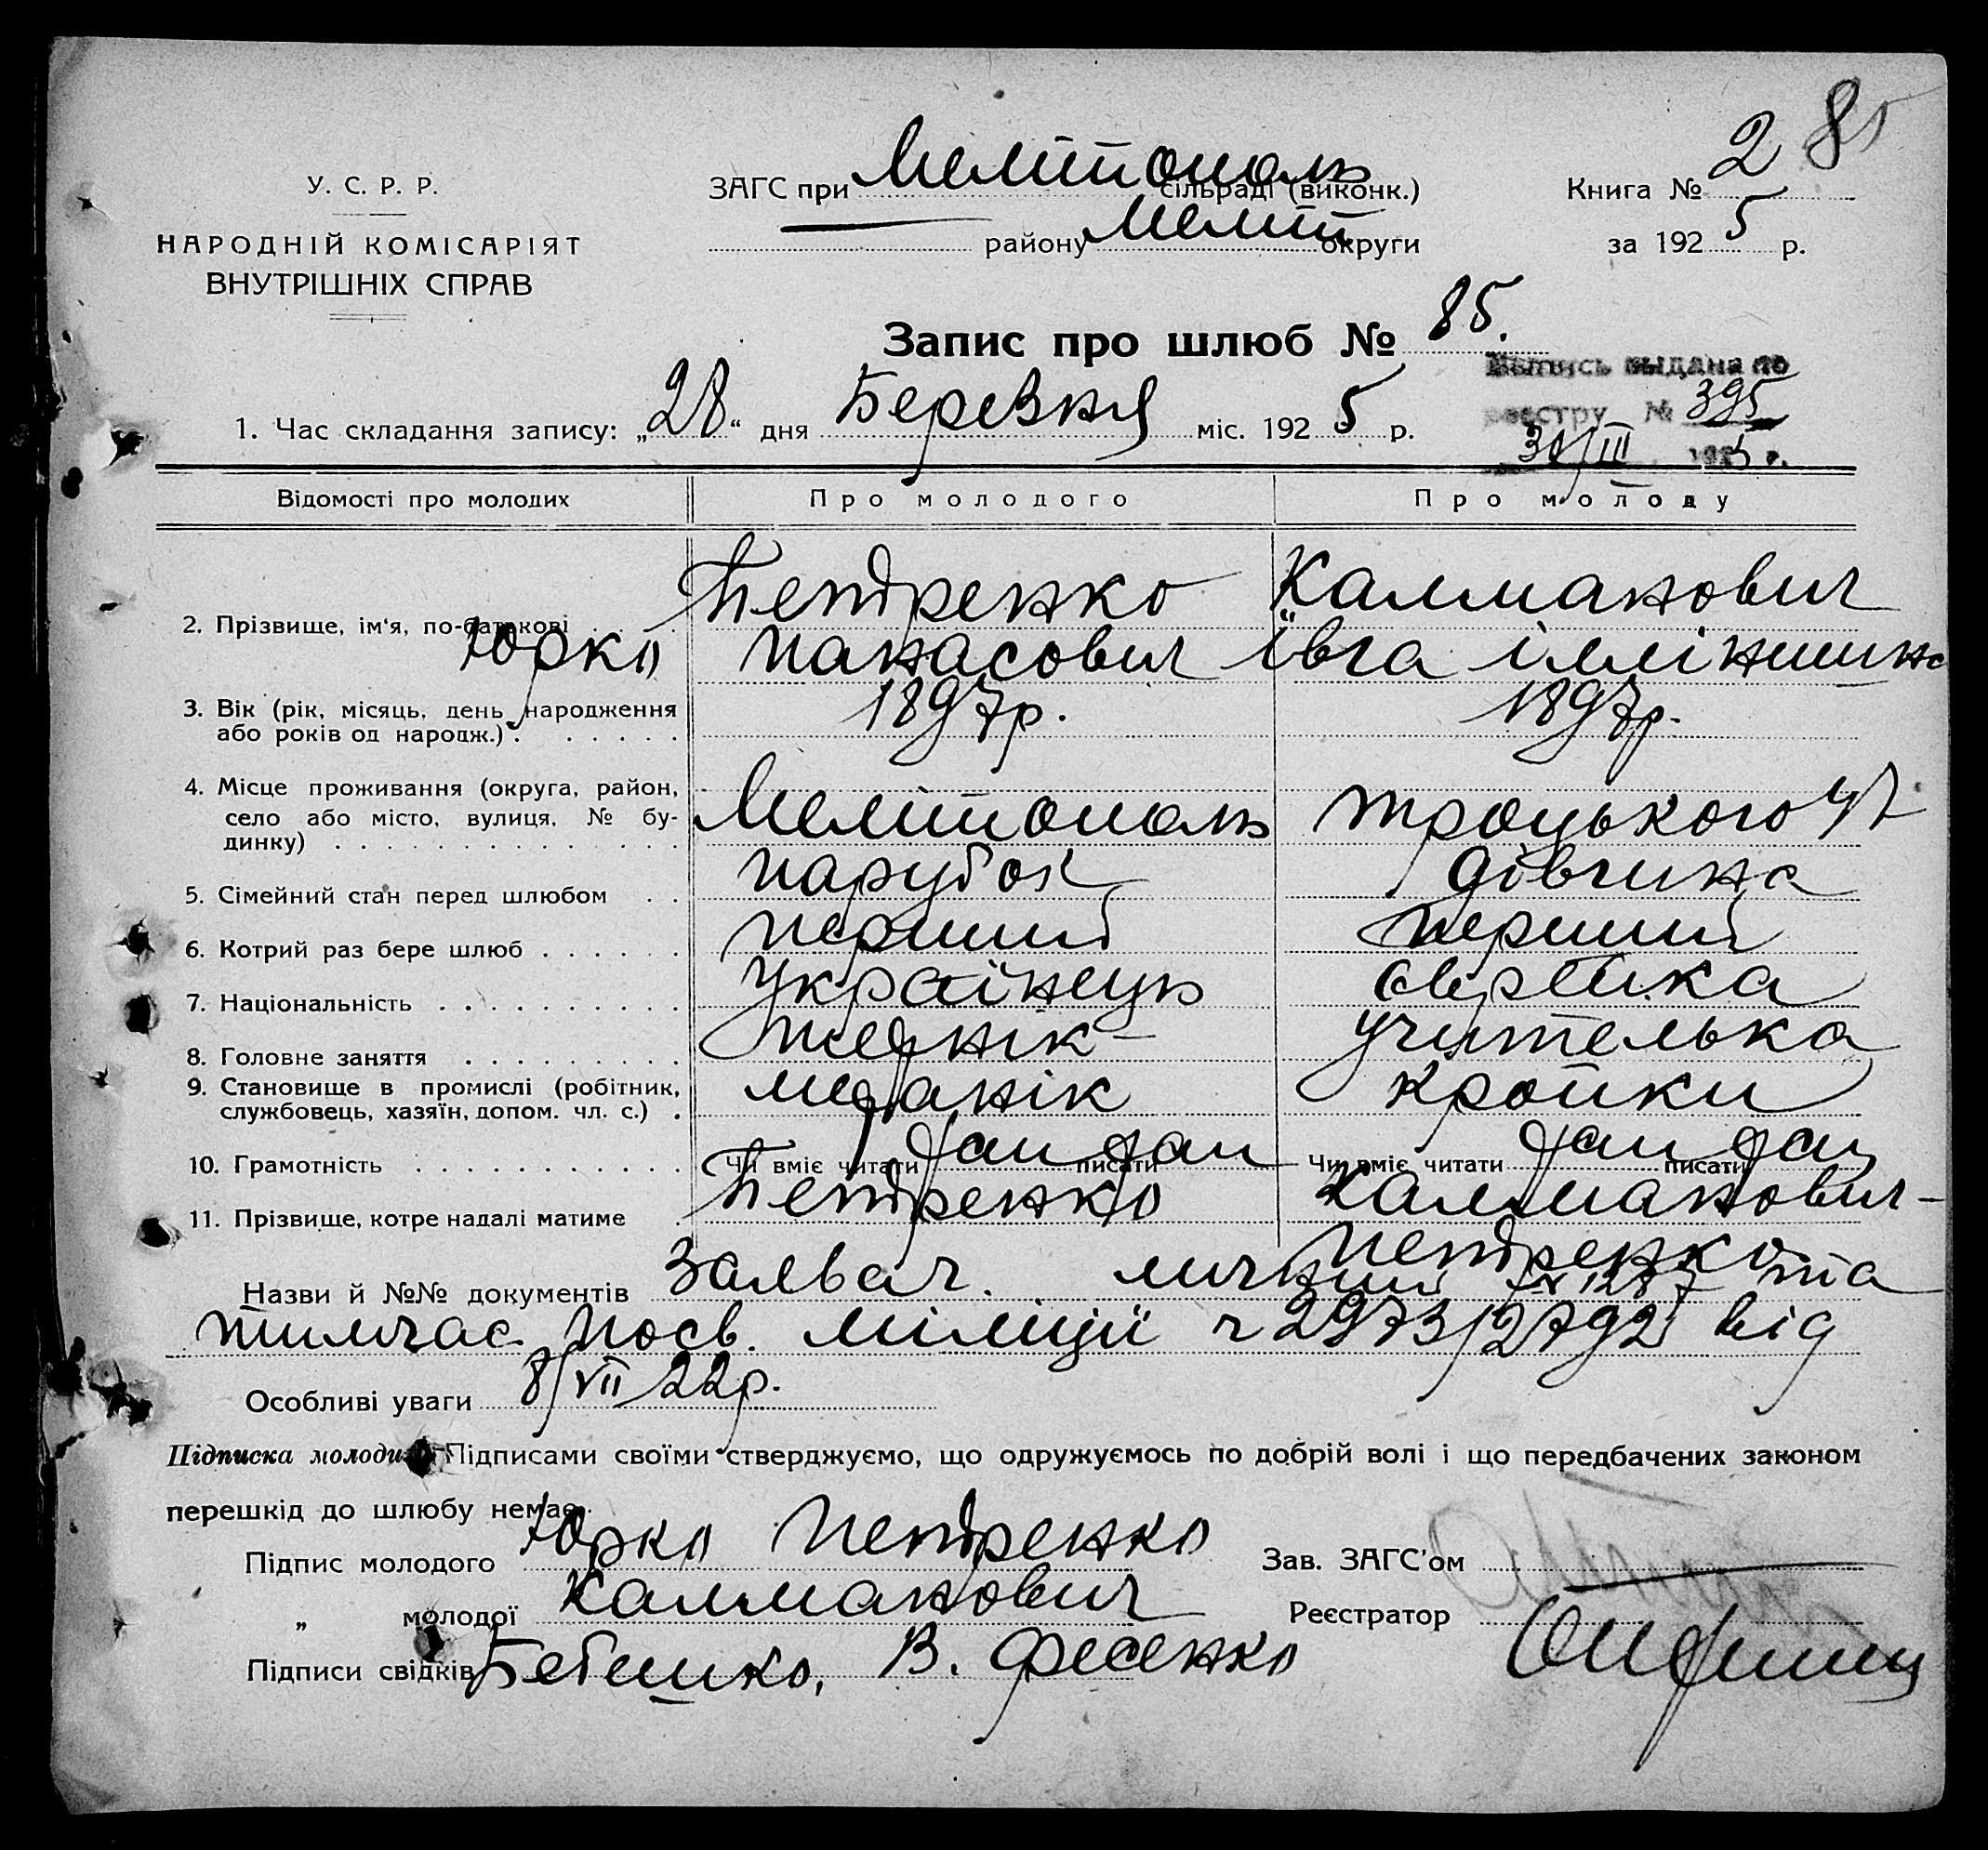 2 85
У. С. Р. Р.
НАРОДНІЙ КОМІСАРІЯТ
ВНУТРІШНІХ СПРАВ
ЗАГС при Мелітополь сільраді (виконк.)
району Меліт округи
Книга № 2
за 1925 р.
Запис про шлюб № 85.
Выпись выдана по
реестру № 395
30/III 1925 г.
1. Час складання запису: „28“ дня Березня міс. 1925 р.
Відомості про молодих Про молодого Про молоду
2. Прізвище, ім‘я, по-батькові Петренко Калманович
Юрко Панасович Івга Іллінишна
3. Вік (рік, місяць, день народження або років од народж.) 1897р. 1897р.
4. Місце проживання (округа, район, село або місто, вулиця, № будинку) Мелітополь Троцького 47
5. Сімейний стан перед шлюбом парубок дівчина
6. Котрий раз бере шлюб перший перший
7. Національність Українець Єврейка
8. Головне заняття учителька
9. Становище в промислі (робітник, службовець, хазяїн, допом. чл. с.) механік кройки
10. Грамотність Чи вміє читати так писати так Чи вміє читати так писати так
11. Прізвище, котре надалі матиме Петренко Калманович-
Петренко
Назви й №№ документів та
тимчас. посв. міліції ч 2973/2792 від
Особливі уваги 8/VII 22р.
Підписка молодих Підписами своїми стверджуємо, що одружуємось по добрій волі і що передбачених законом
перешкід до шлюбу немає.
Підпис молодого Юрко Петренко
Зав. ЗАГС’ом
„ молодої Калманович
Реєстратор
Підписи свідків Бебешко, В. Фесенко